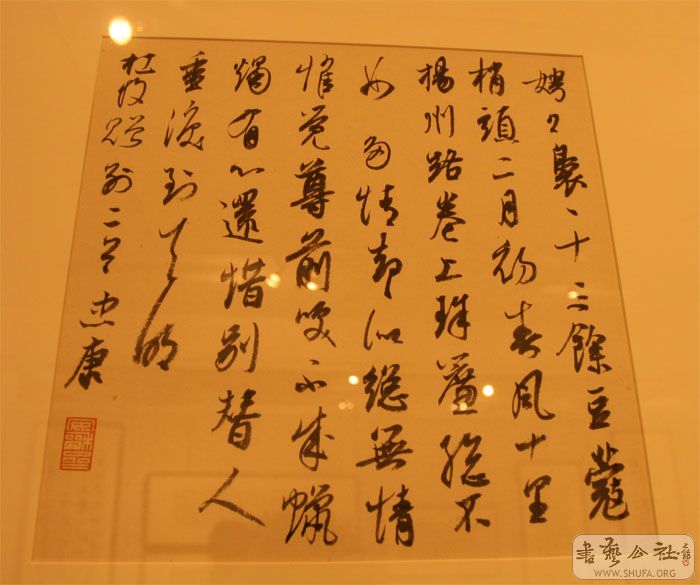 娉〻裊〻十三餘豆蔻
梢頭二月初春風十里
楊州路卷上珠簾總不
如多情却似總無情
惟覺尊前笑不成蠟
燭有心還惜別替人
垂淚到天明
杜牧贈別二首 忠康
書藝公社
WWW.SHUFA.ORG